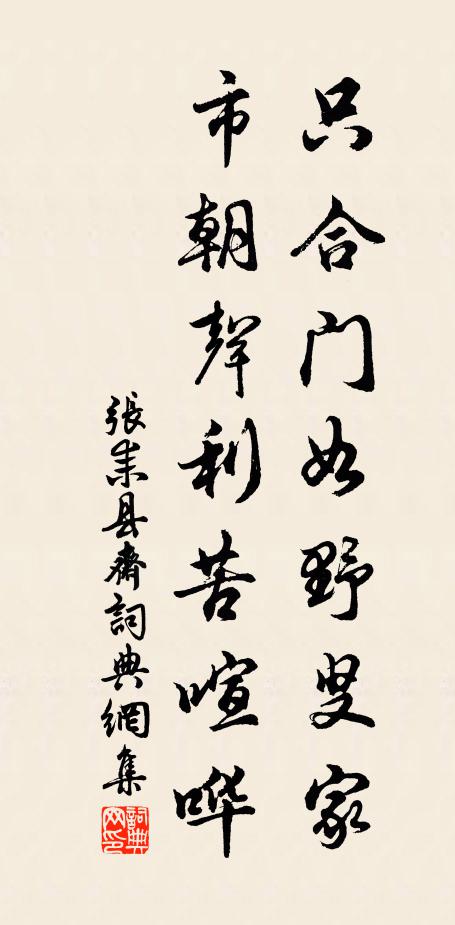 只合门如野叟家
市朝聲利苦喧哗
張耒县齋詞典網集
詞典
网印